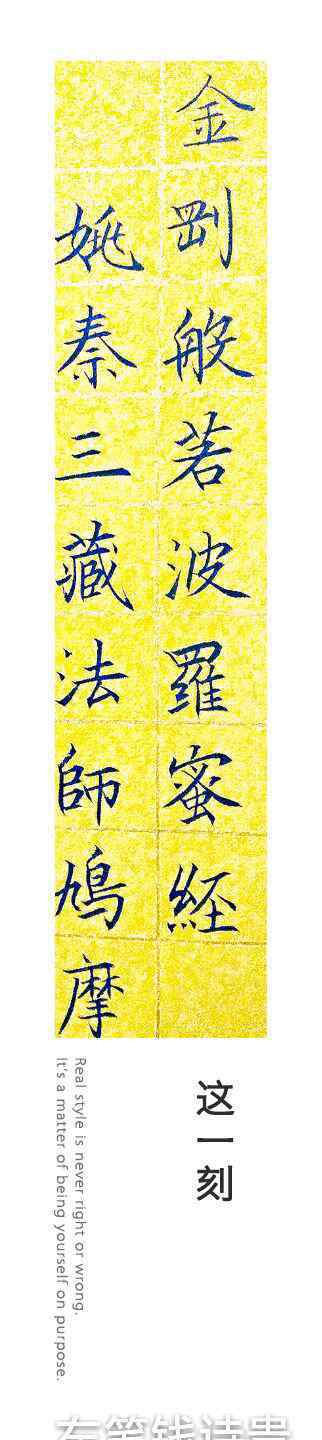 金剛般若波羅蜜經
姚秦三藏法師鳩摩
这一刻
Real style is never right or wrong.
It's a matter of being yourself on purpose.